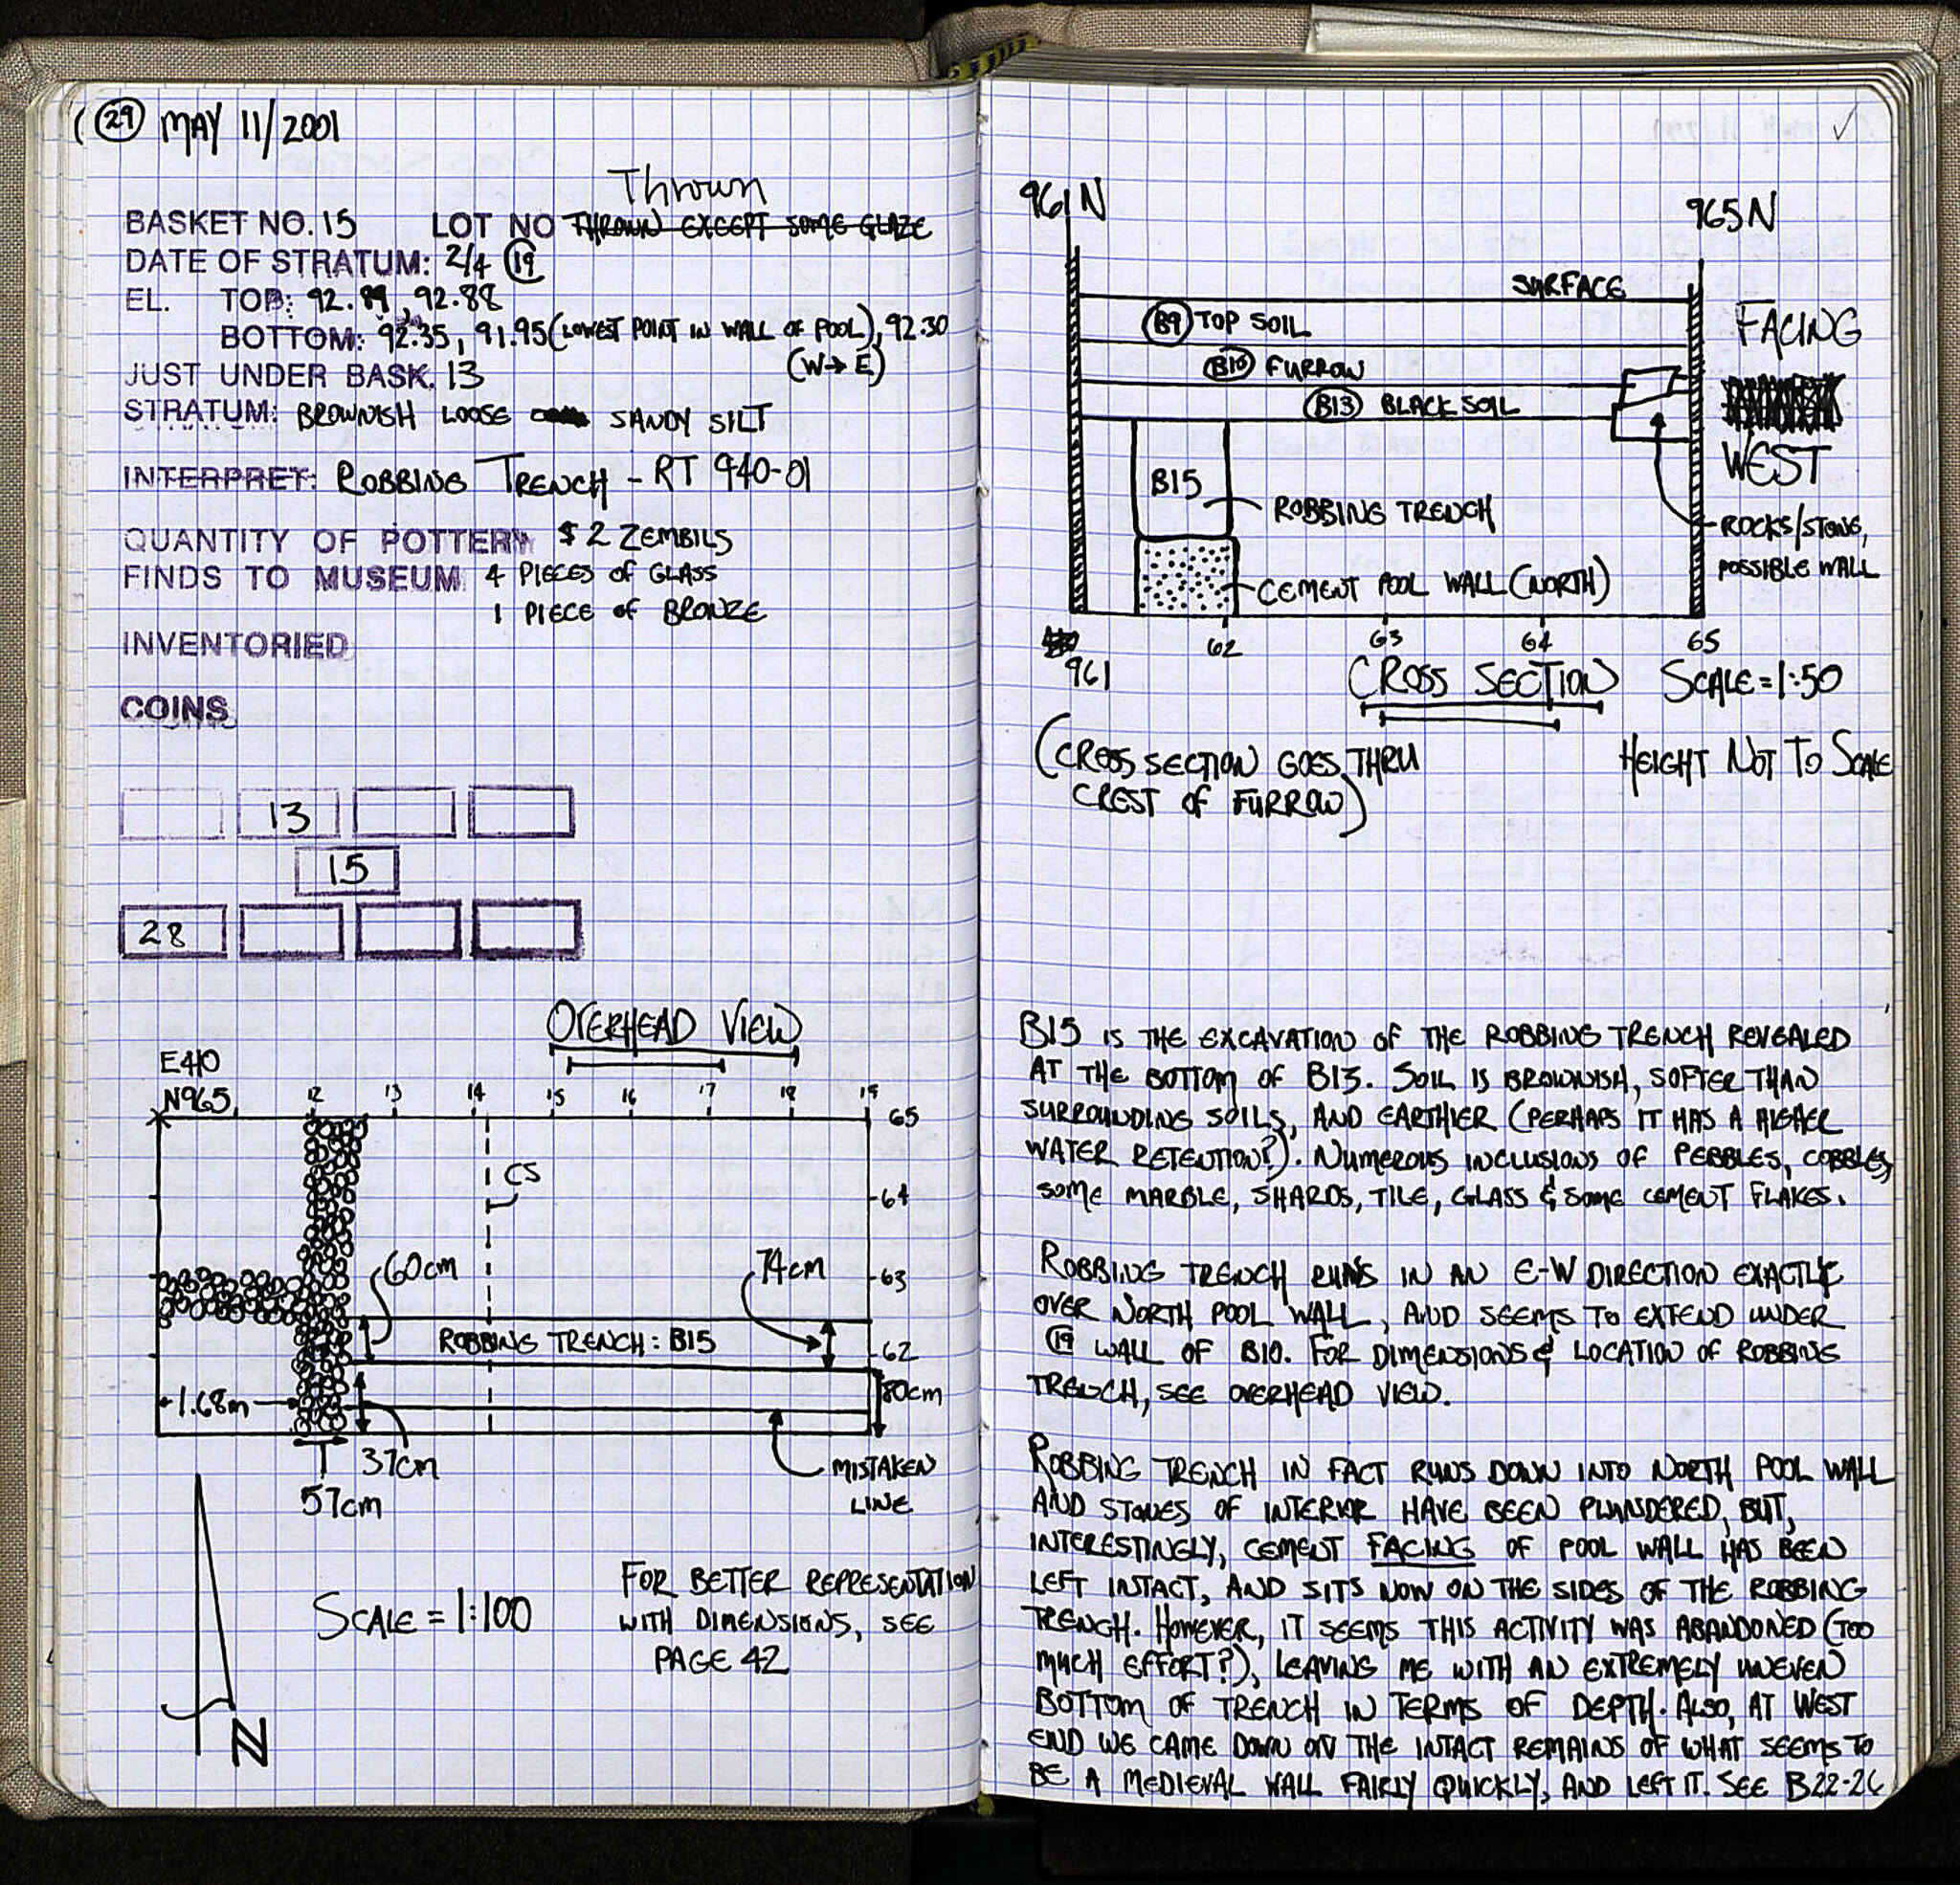 29 MAY 11/2001
Thrown
BASKET NO. 15 LOT NO THROWN EXCEPT SOME GLAZE
DATE OF STRATUM: 2/4 19
EL. TOP: 92.89, 92.88
BOTTOM: 92.35, 91.95 (LOWEST POINT IN WALL OF POOL), 92.30
(W→E)
JUST UNDER BASK. 13
STRATUM: BROWNISH LOOSE SANDY SILT
INTERPRET: ROBBING TRENCH - RT 940-01
QUANTITY OF POTTERY 2 ZEMBILS
FINDS TO MUSEUM 4 PIECES OF GLASS
1 PIECE OF BRONZE
INVENTORIED
COINS
13
15
28
OVERHEAD VIEW
E410
N965 12 13 14 15 16 17 18 19
65
CS
64
60cm
74cm
63
ROBBING TRENCH: B15
62
1.68m
80cm
37cm
57cm
MISTAKEN
LINE
SCALE = 1:100
FOR BETTER REPRESENTATION
WITH DIMENSIONS, SEE
PAGE 42
N
961N
965N
SURFACE
B9 TOP SOIL
FACING
B10 FURROW
B13 BLACK SOIL
WEST
B15
ROBBING TRENCH
ROCKS/STONE,
POSSIBLE WALL
CEMENT POOL WALL (NORTH)
961 62 63 64 65
CROSS SECTION SCALE = 1:50
(CROSS SECTION GOES THRU
CREST OF FURROW)
HEIGHT NOT TO SCALE
B15 IS THE EXCAVATION OF THE ROBBING TRENCH REVEALED
AT THE BOTTOM OF B13. SOIL IS BROWNISH, SOFTER THAN
SURROUNDING SOILS, AND EARTHIER (PERHAPS IT HAS A HIGHER
WATER RETENTION?). NUMEROUS INCLUSIONS OF PEBBLES, COBBLES,
SOME MARBLE, SHARDS, TILE, GLASS & SOME CEMENT FLAKES.
ROBBING TRENCH RUNS IN AN E-W DIRECTION EXACTLY
OVER NORTH POOL WALL, AND SEEMS TO EXTEND UNDER
19 WALL OF B10. FOR DIMENSIONS & LOCATION OF ROBBING
TRENCH, SEE OVERHEAD VIEW.
ROBBING TRENCH IN FACT RUNS DOWN INTO NORTH POOL WALL
AND STONES OF INTERIOR HAVE BEEN PLUNDERED, BUT,
INTERESTINGLY, CEMENT FACING OF POOL WALL HAS BEEN
LEFT INTACT, AND SITS NOW ON THE SIDES OF THE ROBBING
TRENCH. HOWEVER, IT SEEMS THIS ACTIVITY WAS ABANDONED (TOO
MUCH EFFORT?), LEAVING ME WITH AN EXTREMELY UNEVEN
BOTTOM OF TRENCH IN TERMS OF DEPTH. ALSO, AT WEST
END WE CAME DOWN ON THE INTACT REMAINS OF WHAT SEEMS TO
BE A MEDIEVAL WALL FAIRLY QUICKLY, AND LEFT IT. SEE B22-26